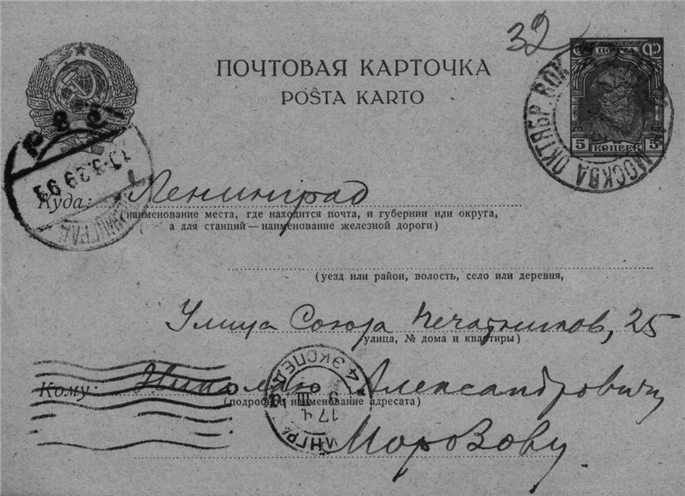 32
ПОЧТОВАЯ КАРТОЧКА
POŜTA KARTO
ПОЧТА
5 КОПЕЕК 5
МОСКВА ОКТЯБР. ВОК
Куда: Ленинград
(наименование места, где находится почта, и губернии или округа,
а для станций—наименование железной дороги)
(уезд или район, волость, село или деревня,
Улица Союза Печатников, 25
улица, № дома и квартиры)
4 ЭКСПЕД
Кому: Николаю Александровичу
(подробное наименование адресата)
Морозову